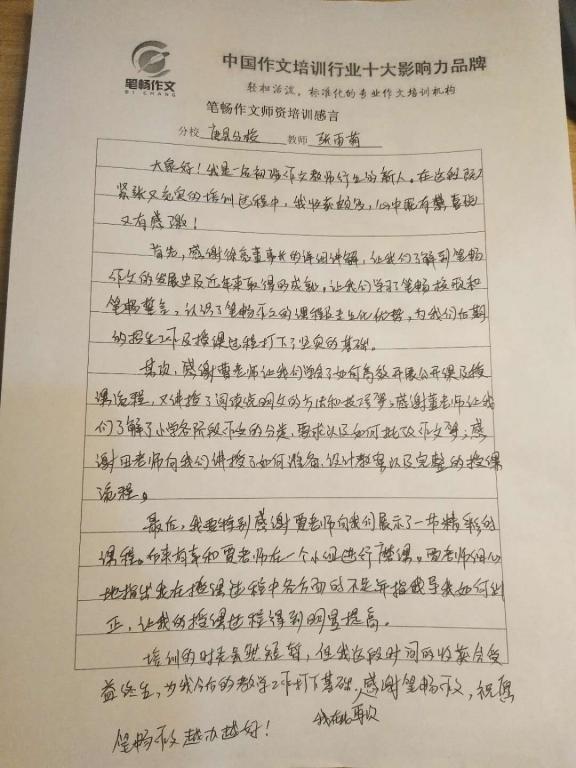 笔畅作文
BI CHANG
中国作文培训行业十大影响力品牌
轻松活泼,标准化的专业作文培训机构
笔畅作文师资培训感言
分校 唐县分校 教师 张雨萌
大家好!我是一名初入作文教师行业的新人。在这段既
紧张又充实的培训过程中,我收获颇多,心中既有喜悦
又有感激!
首先,感谢徐亮董事长的详细讲解,让我们了解到笔畅
作文的发展史及近年来取得的成就。让我们学习了笔畅校歌和
笔畅誓言,认识了笔畅作文的课程及专业化优势,为我们后期
的招生工作及授课过程打下了坚实的基础。
其次,感谢曹老师让我们学会了如何高效开展公开课及授
课流程,又讲授了阅读说明文的方法和技巧等;感谢董老师让我
们了解了小学各阶段作文的分类,要求以及如何批改作文等;感
谢田老师向我们讲授了如何准备、设计教案以及完整的授课
流程。
最后,我要特别感谢贾老师向我们展示了一节精彩的
课程。后来有幸和贾老师在一个小组进行磨课。贾老师细心
地指出我在授课过程中各方面的不足并指导我如何纠
正,让我的授课过程得到明显提高。
培训的时光虽然短暂,但我这段时间的收获会受
益终生,为我今后的教学工作打下基础。感谢笔畅作文,祝愿
我在此再次
笔畅作文越办越好!